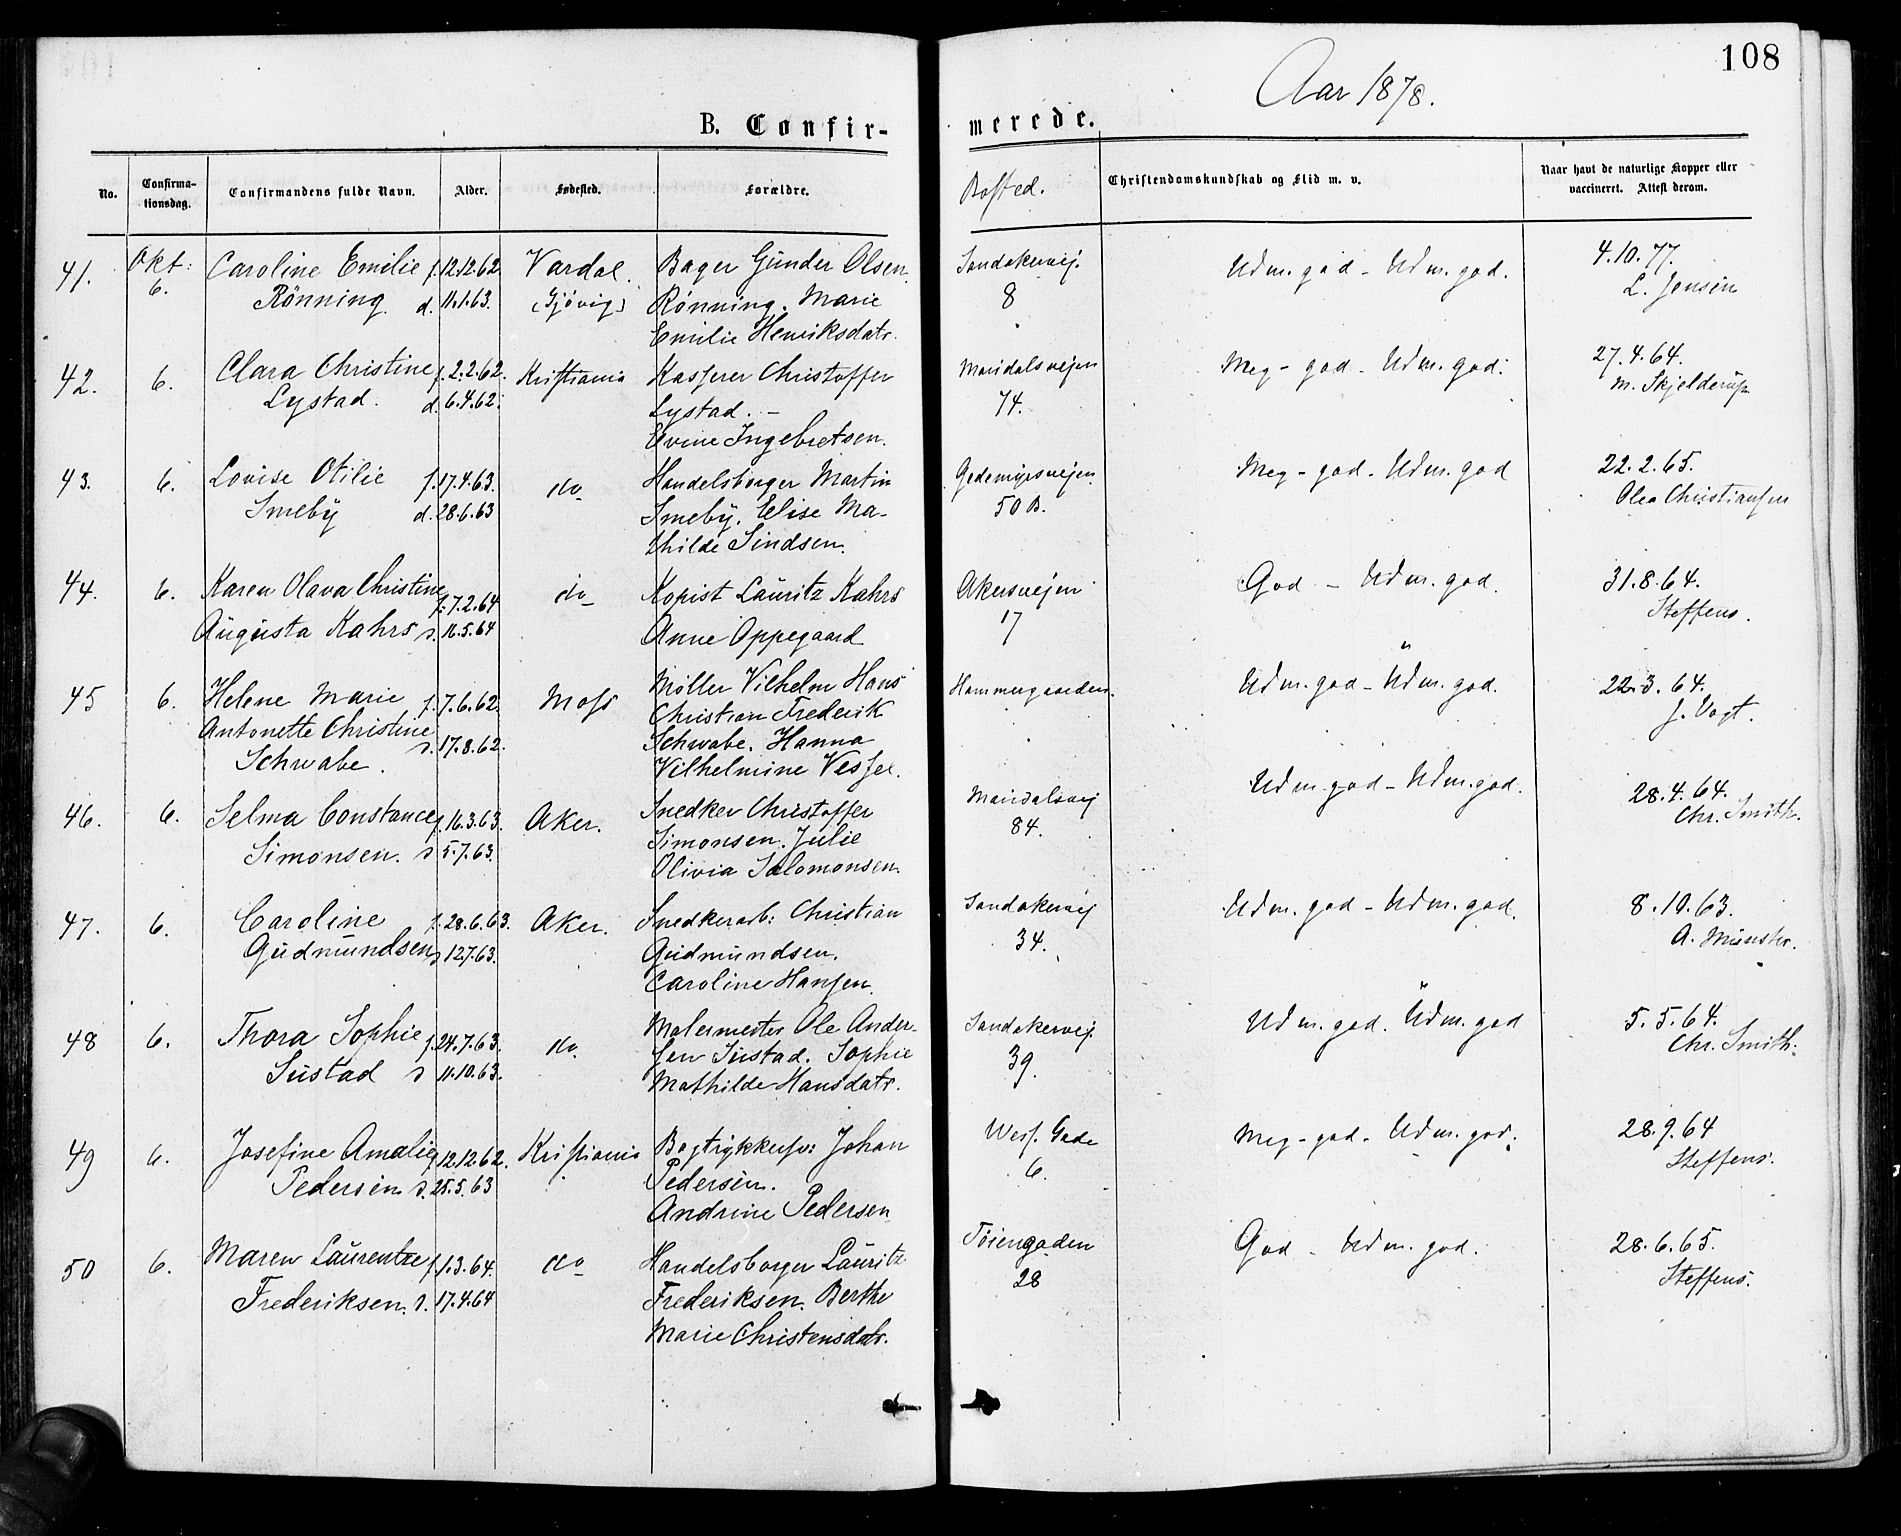 108
Aar 1878.
B. Confirmerede.
No.
Confirmationsdag.
Confirmandens fulde Navn.
Alder.
Fødested.
Forældre.
Bosted.
Christendomskundskab og Flid m. v.
Naar havt de naturlige Kopper eller
vaccineret. Attest derom.
41. Okt: 6. Caroline Emilie f. 12.12.62 Vardal. Bager Gunder Olsen Sandakervej. Udm. god - Udm. god. 4.10.77.
Rönning. d. 11.1.63. (Gjövig) Rönning. Marie 8 L. Jensen
Emilie Henriksdatr.
42. 6. Clara Christine f. 2.2.62. Kristiania Kasserer Christoffer Maridalsvejen Meg - god - Udm. god. 27.4.64.
Lystad. d. 6.4.62. Lystad. - 74. M. Skjelderup
Evine Ingebretsen.
43. 6. Lovise Otilie f. 17.4.63. do Handelsborger Martin Gedemyrsvejen Meg - god - Udm. god 22.2.65.
Smeby d. 28.6.63 Smeby. Elise Ma- 50 B. Olea Christiansen
thilde Sindsen.
44. 6. Karen Olava Christine f. 7.2.64 do Kopist Lauritz Kahrs Akersvejen God - Udm. god. 31.8.64.
Augusta Kahrs d. 16.5.64 Anne Oppegaard 17 Steffens.
45 6. Helene Marie f. 7.6.62. Moss Möller Vilhelm Hans Hammergaarden. Udm. god - Udm. god. 22.3.64.
Antonette Christine d. 17.8.62. Christian Frederik J. Vogt.
Schwabe. Schwabe. Hanna
Vilhelmine Vessel.
46. 6. Selma Constance f. 16.3.63. Aker. Snedker Christoffer Maridalsvej Udm. god - Udm. god. 28.4.64.
Simonsen. d 5.7.63. Simonsen. Julie 84. Chr. Smith.
Olivia Salomonsen.
47. 6. Caroline f. 28.6.63. Aker. Snedkerarb: Christian Sandakervej Udm. god - Udm. god. 8.10.63.
Gudmundsen d 12.7.63. Gudmundsen. 34. A. Münster.
Caroline Hansen.
48 6. Thora Sophie f. 24.7.63. do. Malermester Ole Ander- Sandakervej. Udm. god. Udm. god 5.5.64.
Sustad d 11.10.63. sen Sustad. Sophie 39. Chr. Smith.
Mathilde Hansdatr.
49 6. Josefine Amalie f. 12.12.62. Kristiania Bogtrykkersv: Johan Wess. Gade Meg - god - Udm. god. 28.9.64
Pedersen d. 25.5.63 Pedersen. 6. Steffens.
Andrine Pedersen
50 6. Maren Laurentze f. 1.3.64. do Handelsborger Lauritz Töiengaden God - Udm. god. 28.6.65.
Frederiksen. d. 17.4.64 Frederiksen. Berthe 28 Steffens.
Marie Christensdatr.